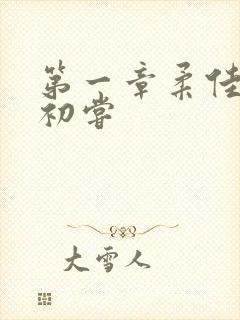 第一章柔佳
初尝
大雪人